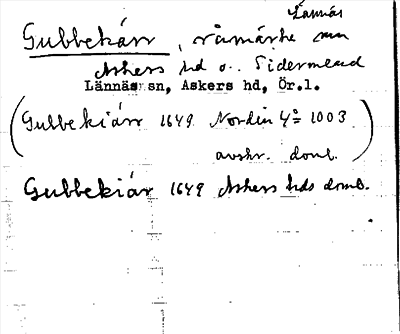 Lännäs
Gubbekärr, råmärke mn
Askers hd o. Sidermead
Lännäs sn, Askers hd, Ör.l.
(Gubbekiärr 1649 Nordin 4:o 1003
avskr. domb.)
Gubbekiär 1649 Askers hds domb.